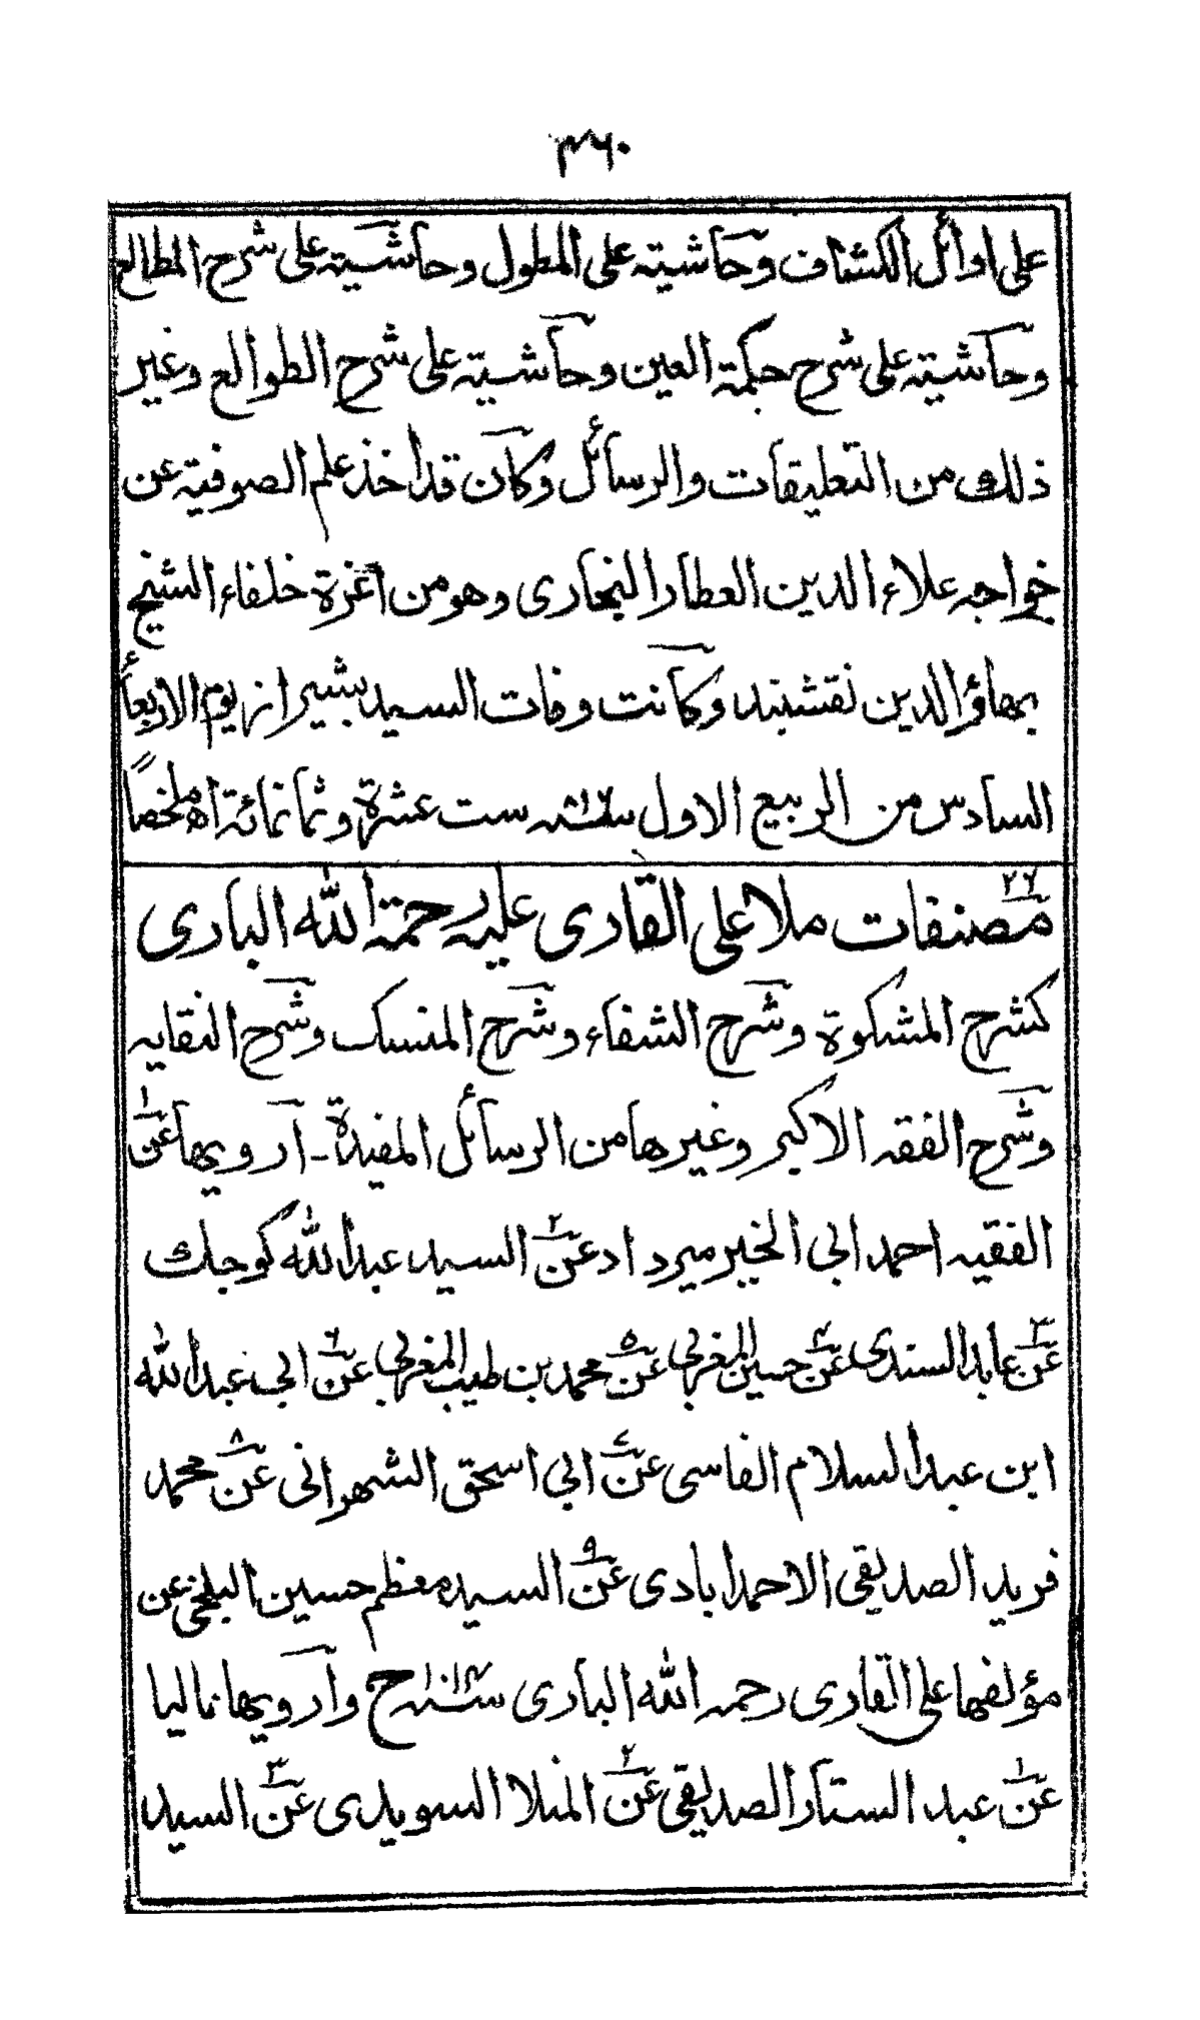 ٣٦٠
على اوائل الكشاف وحاشيته على المطول وحاشيته على شرح المطالع
وحاشيته على شرح حكمة العين وحاشيته على شرح الطوالع وغير
ذلك من التعليقات والرسائل وكان قد اخذ علم الصوفيه عن
خواجه علاء الدين العطار البخارى وهو من اعزة خلفاء الشيخ
بهاؤ الدين نقشبند وكانت وفات السيد بشيراز يوم الاربعاء
السادس من الربيع الاول سنه ٨١٦ ست عشرة وثمانمائة اه ملخصاً
٢٢ مصنفات ملا على القارى عليه رحمة الله البارى
كشرح المشكوة وشرح الشفاء وشرح المنسك وشرح النقايه
وشرح الفقه الاكبر وغيرها من الرسائل المفيدة ـ ارويها عن١
الفقيه احمد ابى الخير ميرداد عن٢ السيد عبد الله كوجك
عن٣ عابد السندى عن٤ حسين المغربى عن٥ محمد بن طيب المغربى عن٦ ابى عبد الله
ابن عبد السلام الفاسى عن٧ ابى اسحق الشهرانى عن٨ محمد
فريد الصديقى الاحمد ابادى عن٩ السيد معظم حسين البلخى عن
مؤلفها على القارى رحمه الله البارى سنه ١٠١٤ ح وارويها ناليا
عن١ عبد الستار الصديقى عن٢ المنلا السويدى عن٣ السيد